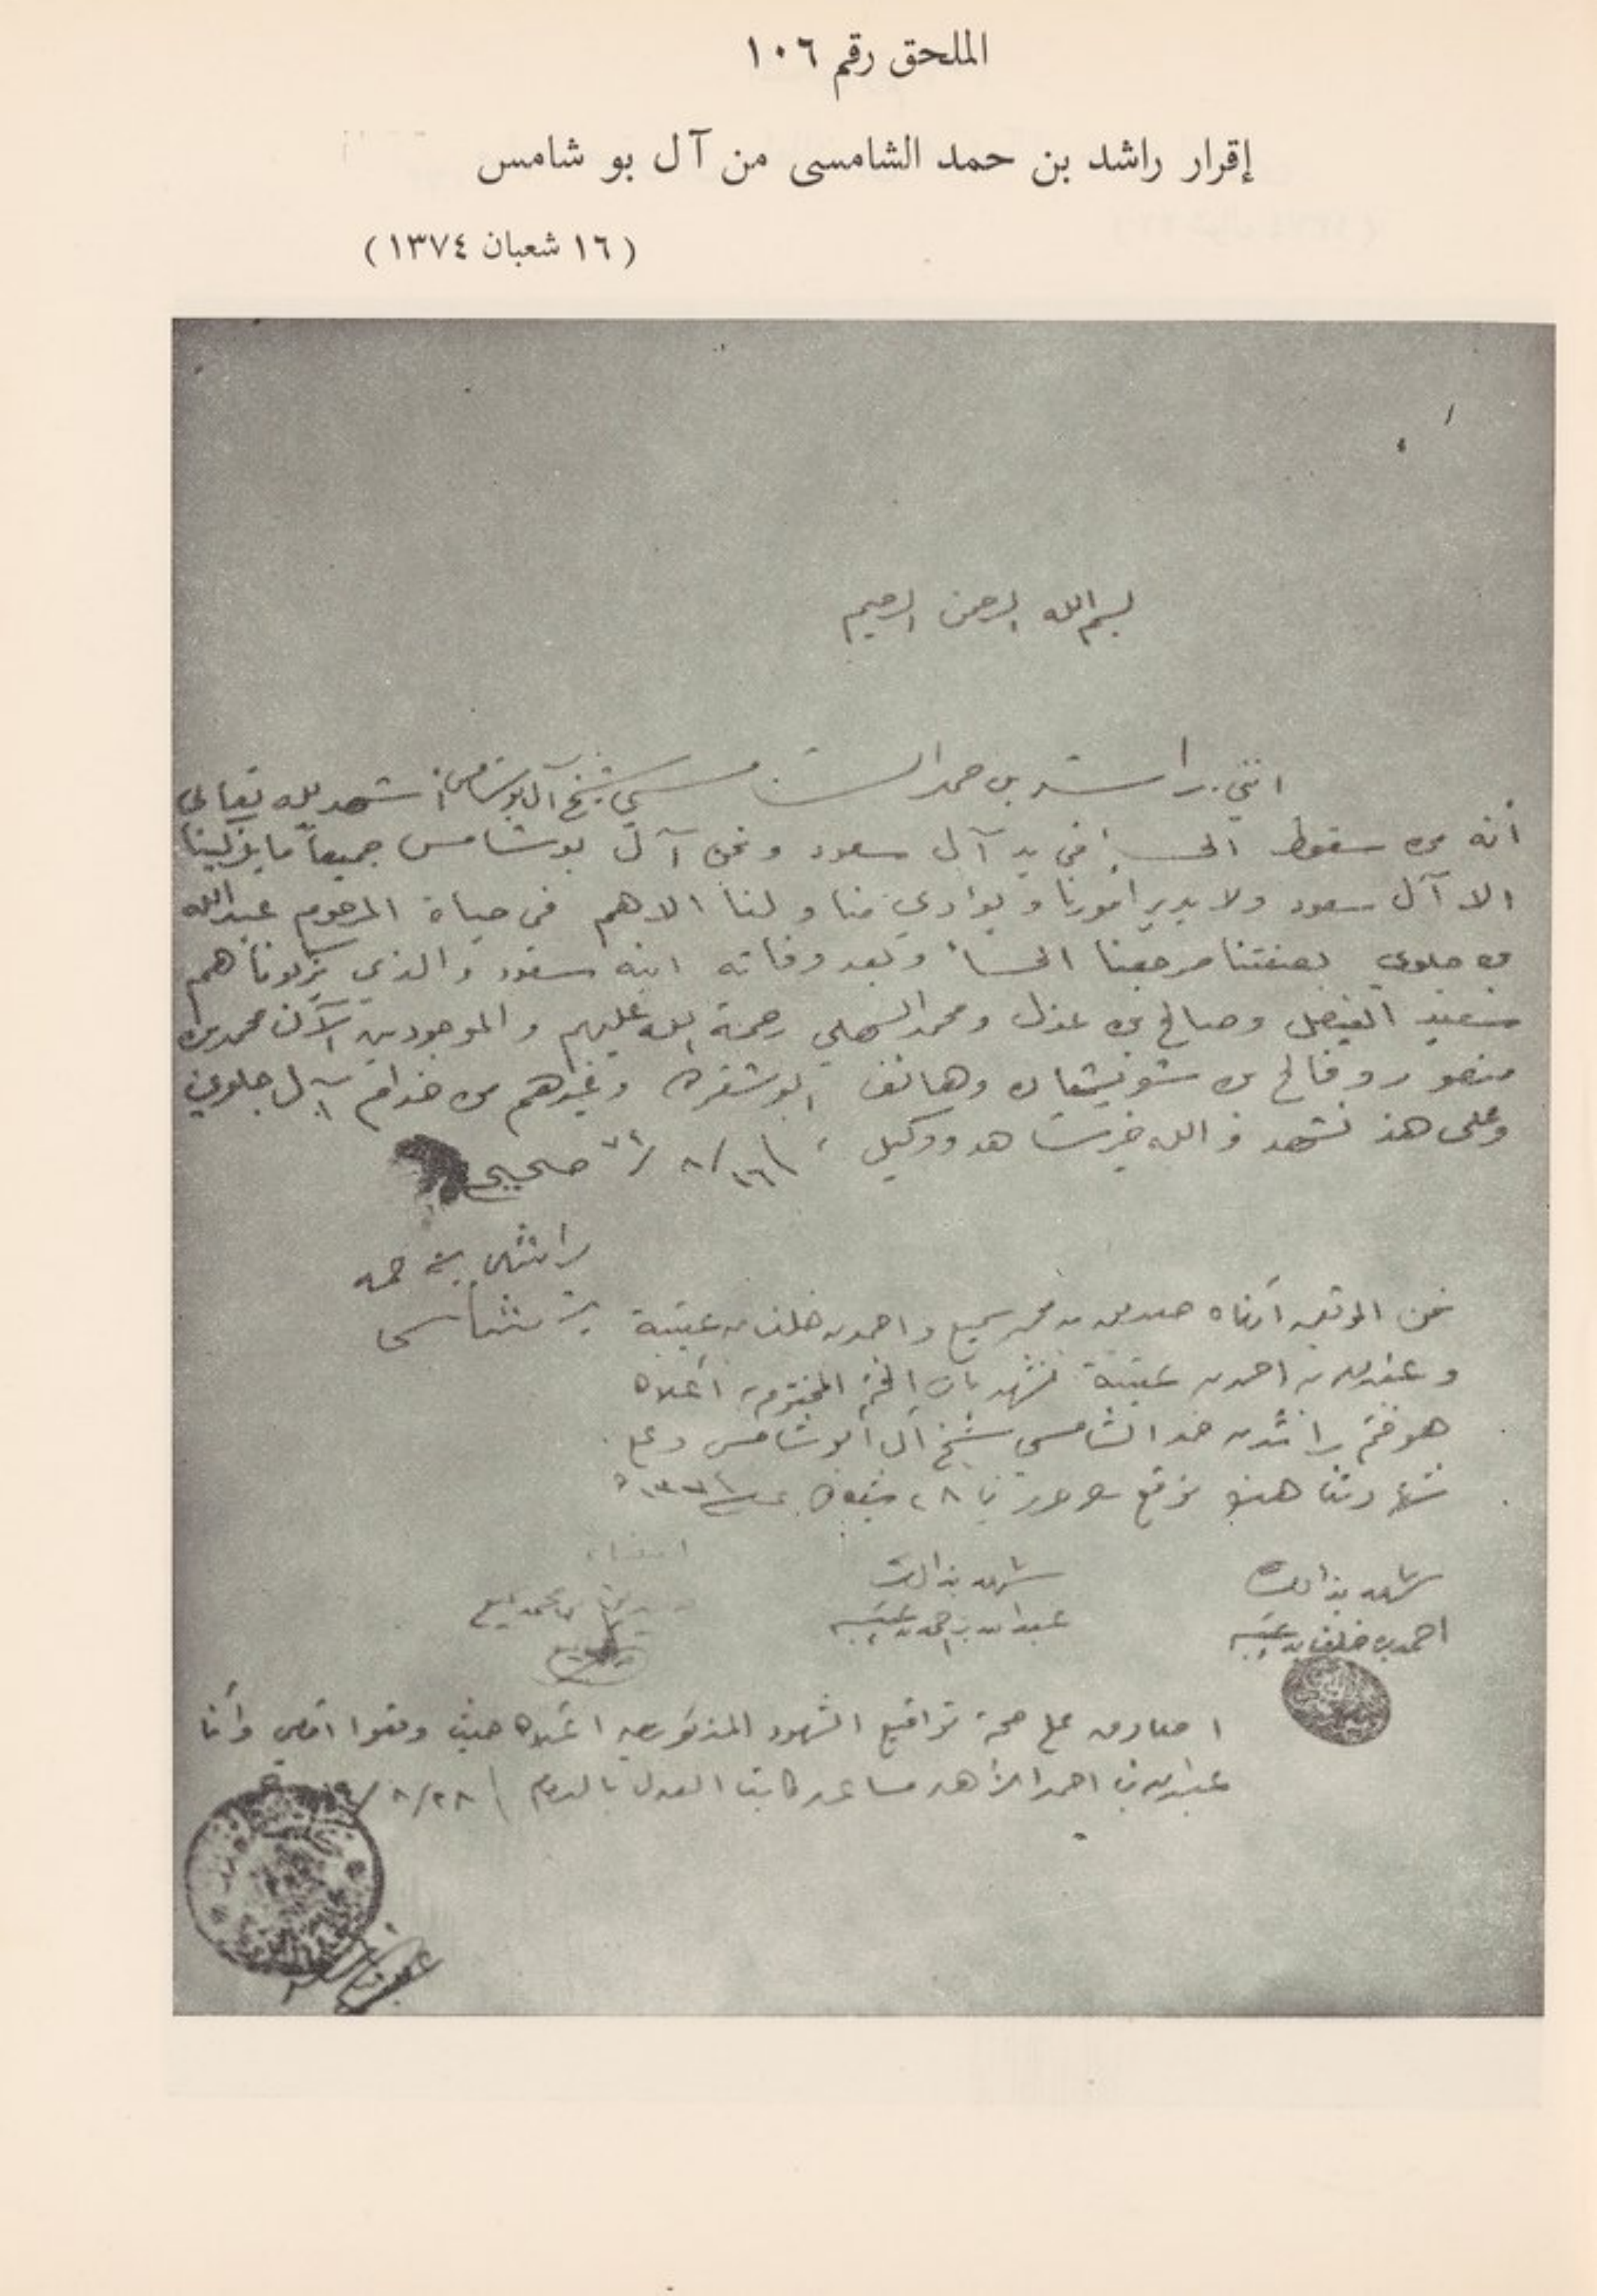 الملحق رقم ١٠٦
إقرار راشد بن حمد الشامسى من آل بو شامس
(١٦ شعبان ١٣٧٤)
بسم الله الرحمن الرحيم
انني راشد بن حمد الشامسي شيخ آل بوشامس اشهد لله تعالى
أنه من سقوط الحسا في يد آل سعود ونحن آل بوشامس جميعاً ما يزكينا
الا آل سعود ولا يدير أمورنا و يؤادي منا و لنا الا هم في حياة المرحوم عبدالله
بن جلوي بصفتنا مرجعنا الحسا وبعد وفاته ابنه سعود والذي يزكونا هم
سعيد الفيصل وصالح بن عذل ومحمد السهلي رحمة الله عليهم والموجودين الآن محمد بن
منصور وفالح بن شويشان وهانف ابوشفره وغيرهم من خدام آل جلوي
وعلى هذ نشهد والله خير شاهد ووكيل ١٦/٨/٧٤ صحيح
راشد بن حمد
الشامسي
نحن الموقعين أدناه محمد سميع واحمد بن خلف بن عتيبة
وعبدالله بن احمد بن عتيبة نشهد بأن الختم المختوم به أعلاه
هو ختم راشد بن حمد الشامسي شيخ آل ابوشامس وعلى
شهادتنا هذه نوقع
شهد بذالك
احمد بن خلف بن عتيبه
شهد بذالك
عبدالله بن احمد بن عتيبه
امضاء
بن محمد سميع
اصادق على صحة تواقيع الشهود المذكورين اعلاه حيث وقعوا امامي وأنا
عبدالله بن احمد مساعد كاتب العدل بالدمام ٢٨/٨